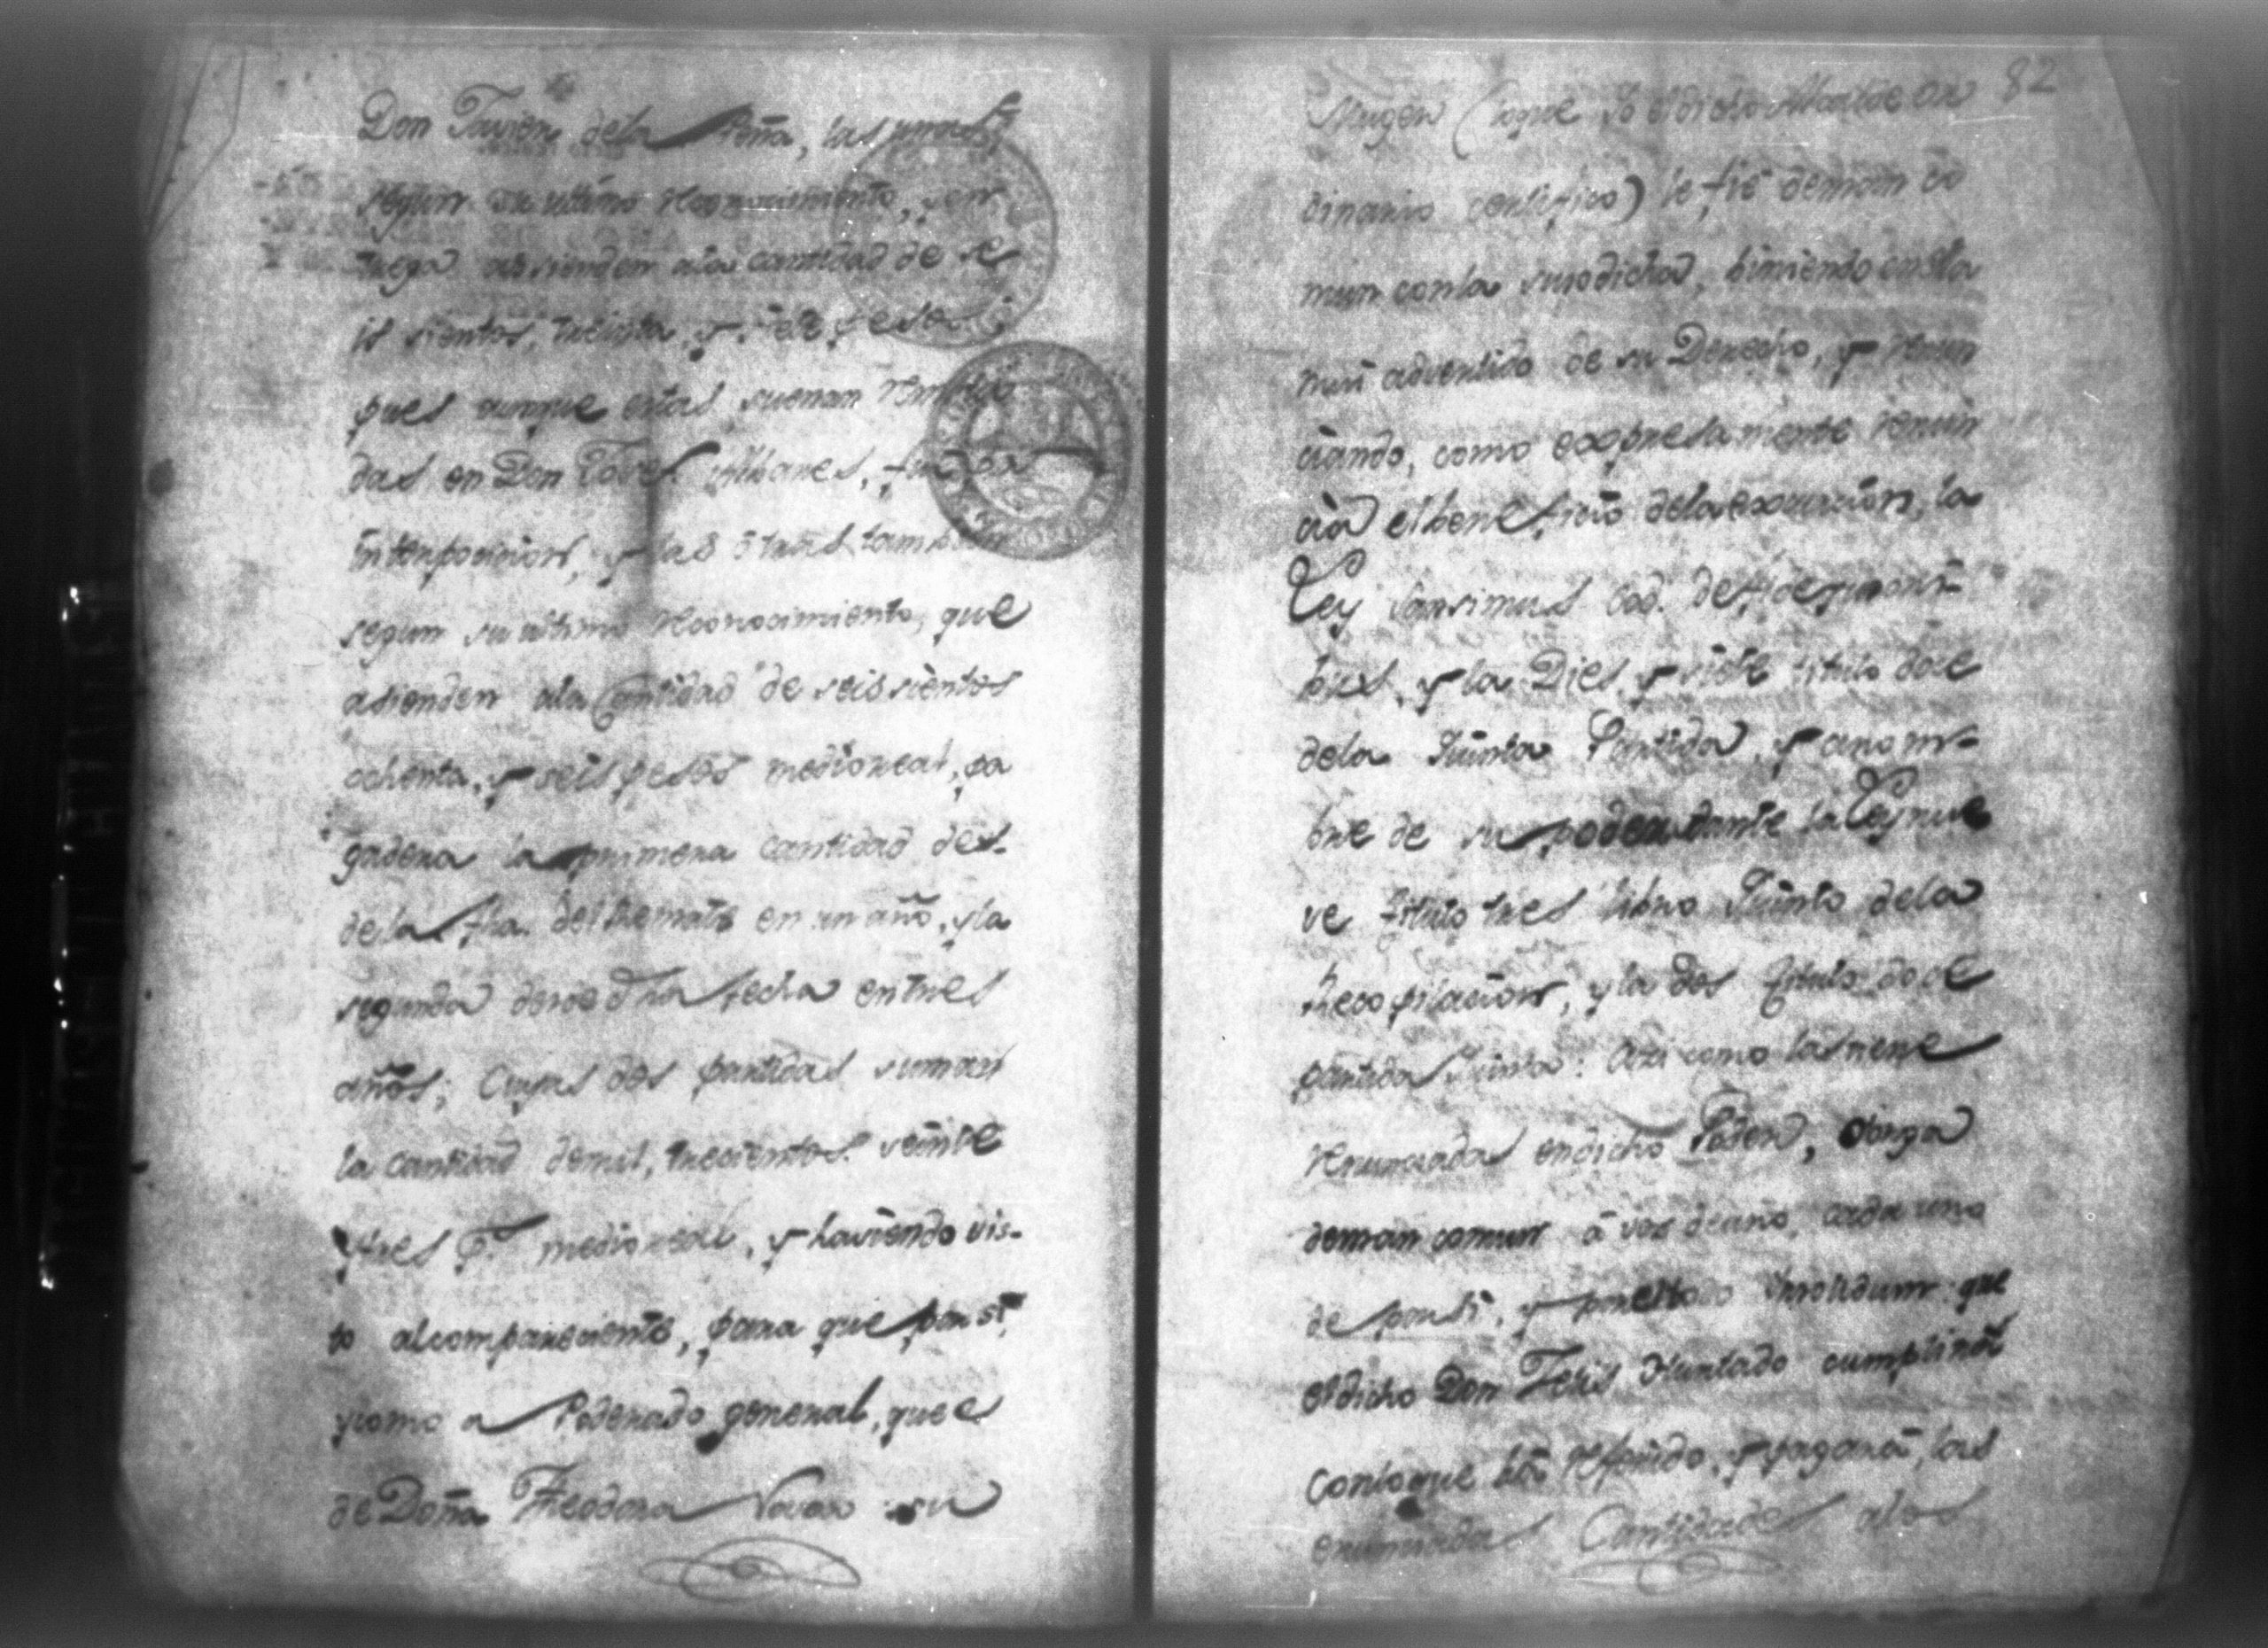 Don Javier de la Peña, las
segun su ultimo reconocimiento, y en
trega absienden ala cantidad de se
is sientos, treinta, y siete pesos,
pues aunque estas suenan remata
das en Don Albares, fue por
interposicion, y las otras tambien
segun su ultimo reconocimiento, que
asienden ala Cantidad de seis sientos
ochenta, y seis pesos medio real, pa
gadera la primera cantidad des-
de la fha. del remate en un año, y la
segunda desde dha fecha en tres
años; Cuyas dos partidas suman
la cantidad de mil, trecientos veinte
y tres ps. medio real, y haviendo vis-
to al compareciente, para que por si,
y como a Poderado general, que es
de Doña Theodora Novoa su
82
Muger (loque Yo el dicho Alcalde or
dinario certifico) se fie de man co
mun con la susodicha, biniendo en ello
mui advertido de su Derecho, y renun
ciando, como expresamente renun
cia el beneficio de la excucion, la
Ley Sansimus Cod. de fidejusori-
bus, y la Dies, y siete titulo doce
de la Quinta Partida, y a nom-
bre de su poderdante la Ley nue
ve titulo tres libro Quinto de la
Recopilacion, y la dos titulo doce
partida Quinta: Asi como las tiene
renunciadas en dicho Poder, otorga
de man comun á vos de uno, cada uno
de por si, y por el todo insolidum que
el dicho Don Felis Hurtado cumplirá
con loque ba referido, y pagará, las
enunciadas Cantidades alos